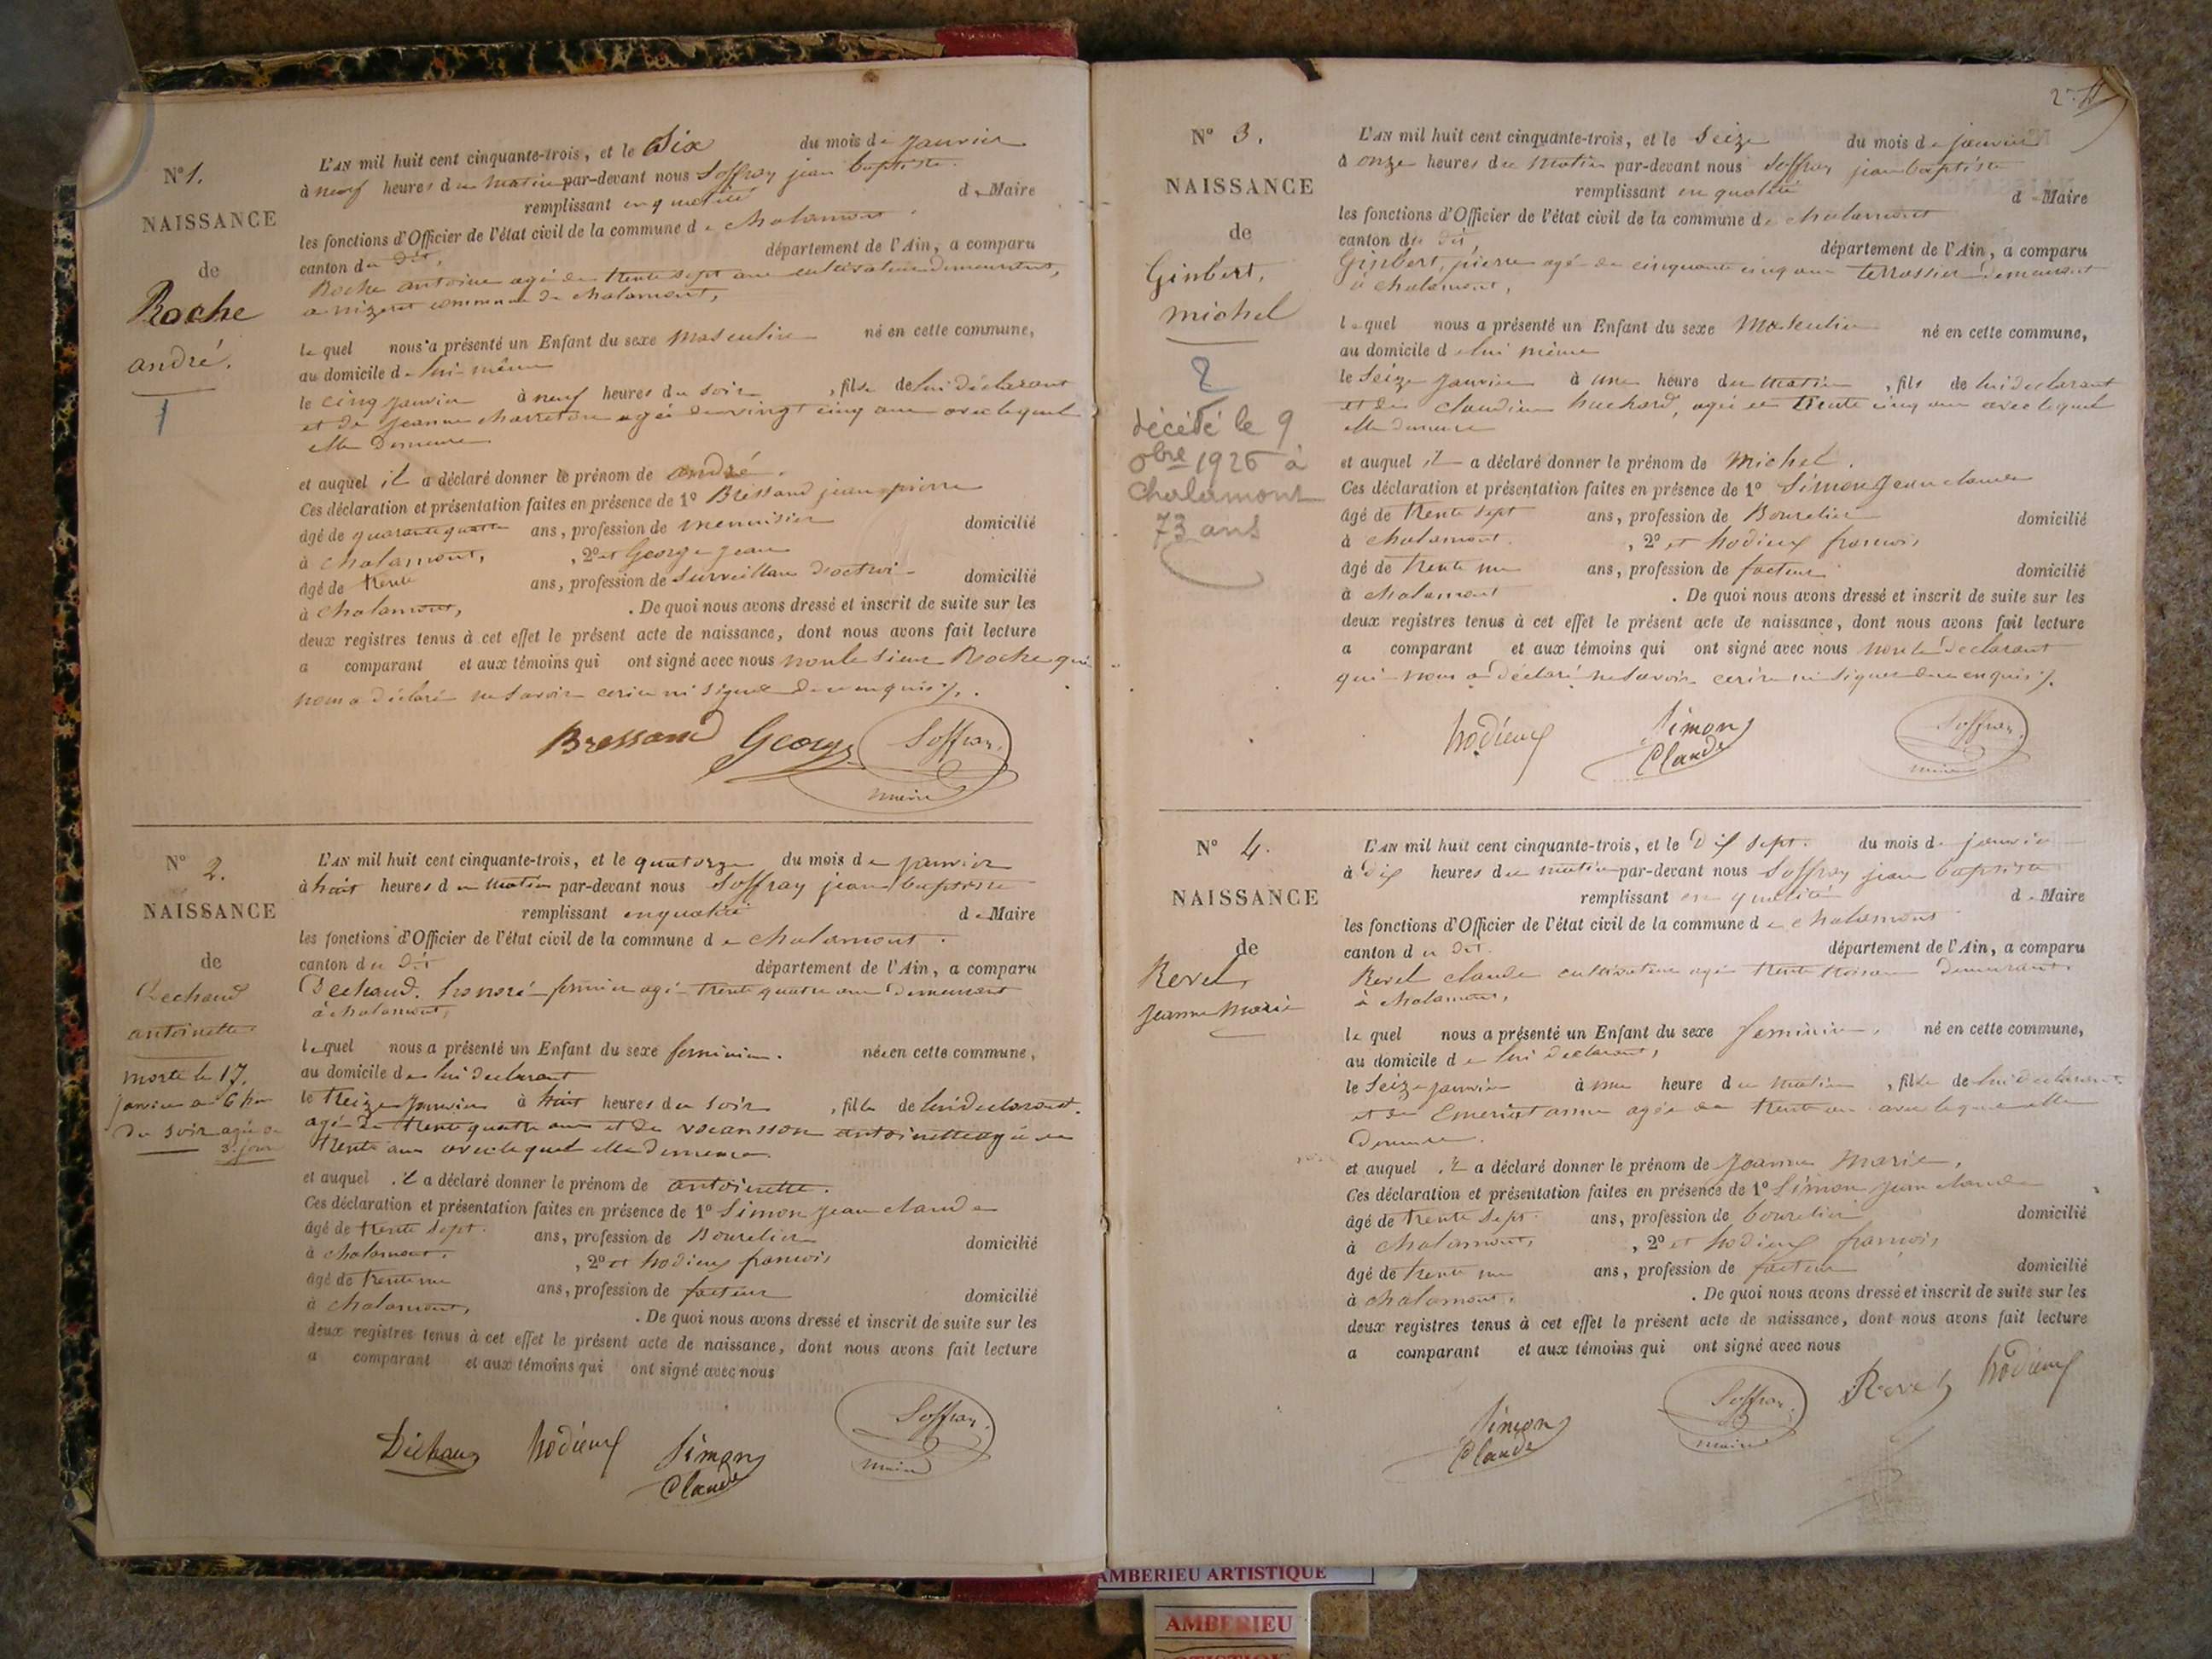 N° 1.
NAISSANCE
de
Roche
andré.
1
L'AN mil huit cent cinquante-trois, et le Six du mois de janvier
à neuf heures du matin par-devant nous Soffray jean baptiste
remplissant en qualité de Maire
les fonctions d'Officier de l'état civil de la commune de chalamont.
canton du dit, département de l'Ain, a comparu
Roche antoine agé de trente sept ans cultivateur demeurant,
commune de chalamont,
le quel nous a présenté un Enfant du sexe masculin né en cette commune,
au domicile de lui même
le cinq janvier à neuf heures du soir, fils de lui déclarant
et de jeanne charreton agée de vingt cinq ans avec lequel
elle demeure
et auquel il a déclaré donner le prénom de andré.
Ces déclaration et présentation faites en présence de 1° Bressand jean pierre
âgé de quarante quatre ans, profession de menuisier domicilié
à chalamont, , 2° et George jean
âgé de trente ans, profession de surveillant d'octroi domicilié
à chalamont, . De quoi nous avons dressé et inscrit de suite sur les
deux registres tenus à cet effet le présent acte de naissance, dont nous avons fait lecture
a comparant et aux témoins qui ont signé avec nous non le sieur Roche qui
nous a déclaré ne savoir ni signer de ce enquis
Bressand George Soffray
maire
N° 2.
NAISSANCE
de
Dechaud
antoinette
morte le 17.
janvier a 6 h
du soir agée de
3 jours
L'AN mil huit cent cinquante-trois, et le quatorze du mois de janvier
à huit heures du matin par-devant nous Soffray jean baptiste
remplissant en qualité de Maire
les fonctions d'Officier de l'état civil de la commune de chalamont.
canton du dit département de l'Ain, a comparu
Dechaud. honoré fermier agé trente quatre ans demeurant
à chalamont,
lequel nous a présenté un Enfant du sexe feminin. née en cette commune,
au domicile de lui declarant
le treize janvier à huit heures du soir, fille de lui declarant.
agé de trente quatre ans et de vocansson antoinette agée de
trente ans avec lequel elle demeure.
et auquel il a déclaré donner le prénom de antoinette.
Ces déclaration et présentation faites en présence de 1° Simon jean claude
âgé de trente sept. ans, profession de Bourelier domicilié
à chalamont, , 2° et hodieux francois
âgé de trente un ans, profession de facteur domicilié
à chalamont, . De quoi nous avons dressé et inscrit de suite sur les
deux registres tenus à cet effet le présent acte de naissance, dont nous avons fait lecture
a comparant et aux témoins qui ont signé avec nous
Dechaud hodieux Simon Claude Soffray
maire
2
N° 3.
NAISSANCE
de
Ginbert,
michel
2
décédé le 9
obre 1926 à
Chalamont
73 ans
L'AN mil huit cent cinquante-trois, et le Seize du mois de janvier
à onze heures du matin par-devant nous Soffray jean baptiste
remplissant en qualité de Maire
les fonctions d'Officier de l'état civil de la commune de chalamont
canton du dit, département de l'Ain, a comparu
Ginbert, pierre agé de cinquante cinq ans terrassier demeurant
à chalamont,
lequel nous a présenté un Enfant du sexe Masculin né en cette commune,
au domicile de lui même
le Seize janvier à une heure du matin, fils de lui declarant
et de claudine buchard, agée de trente cinq ans avec lequel
elle demeure
et auquel il a déclaré donner le prénom de Michel.
Ces déclaration et présentation faites en présence de 1° Simon Jean claude
âgé de trente sept ans, profession de Bourelier domicilié
à chalamont. , 2° et hodieux francois
âgé de trente un ans, profession de facteur domicilié
à chalamont . De quoi nous avons dressé et inscrit de suite sur les
deux registres tenus à cet effet le présent acte de naissance, dont nous avons fait lecture
a comparant et aux témoins qui ont signé avec nous non le declarant
qui nous a déclaré ne savoir ni signer de ce enquis
hodieux Simon Claude Soffray
maire
N° 4.
NAISSANCE
de
Revel
jeanne Marie
L'AN mil huit cent cinquante-trois, et le Dix sept. du mois de janvier
à Dix heures du matin par-devant nous Soffray jean baptiste
remplissant en qualité de Maire
les fonctions d'Officier de l'état civil de la commune de chalamont
canton du dit. département de l'Ain, a comparu
Revel claude cultivateur agé trente trois ans demeurant
à chalamont,
le quel nous a présenté un Enfant du sexe feminin, né en cette commune,
au domicile de lui declarant,
le Seize janvier à une heure du matin, fille de lui declarant
et de anne agée de trente ans avec lequel elle
demeure.
et auquel il a déclaré donner le prénom de Jeanne Marie,
Ces déclaration et présentation faites en présence de 1° Simon jean claude
âgé de trente sept ans, profession de bourelier domicilié
à chalamont, , 2° et hodieux francois,
âgé de trente un ans, profession de facteur domicilié
à chalamont, . De quoi nous avons dressé et inscrit de suite sur les
deux registres tenus à cet effet le présent acte de naissance, dont nous avons fait lecture
a comparant et aux témoins qui ont signé avec nous
Simon Claude Soffray Revel hodieux
maire
AMBERIEU ARTISTIQUE
AMBERIEU